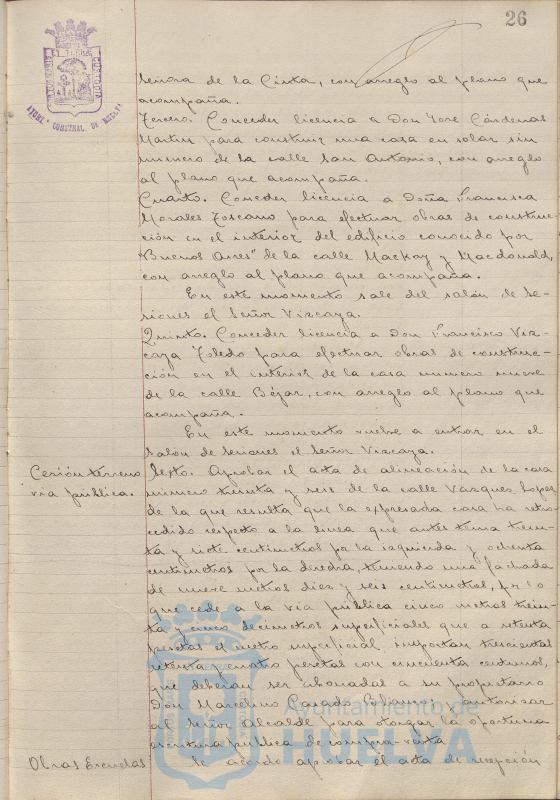 26
AYUNT.º CONSTNAL. DE HUELVA
Señora de la Cinta, con arreglo al plano que
acompaña.
Tercero. Conceder licencia a Don José Cárdenas
Martin para construir una casa en solar sin
numero de la calle San Antonio, con arreglo
al plano que acompaña.
Cuarto. Conceder licencia a Doña Francisca
Morales Toscano para efectuar obras de construc-
ción en el interior del edificio conocido por
"Buenos Aires" de la calle Mackay y Macdonald,
con arreglo al plano que acompaña.
En este momento sale del salón de Se-
siones el Señor Vizcaya.
Quinto. Conceder licencia a Don Francisco Viz-
caya Toledo para efectuar obras de construc-
ción en el interior de la casa numero nueve
de la calle Béjar, con arreglo al plano que
acompaña.
En este momento vuelve a entrar en el
Salón de Sesiones el Señor Vizcaya.
Cesión terreno
via pública.
Sexto. Aprobar el acta de alineación de la casa
numero treinta y seis de la calle Vazquez Lopez
de la que resulta que la expresada casa ha retro-
cedido respecto a la linea que antes tenia trein-
ta y siete centimetros por la izquierda y ochenta
centimetros por la derecha, teniendo una fachada
de nueve metros diez y seis centimetros, por lo
que cede a la via pública cinco metros trein-
ta y cinco decimetros superficiales que a setenta
pesetas el metro superficial, importan trescientas
setenta y cuatro pesetas con cincuenta centimos,
que deberán ser abonadas a su propietario
Don Marcelino Casado Polanco y autorizar
al Señor Alcalde para otorgar la oportuna
escritura pública de compra-venta.
Obras Escuelas
Se acordó aprobar el acta de recepción
Ayuntamiento de
HUELVA